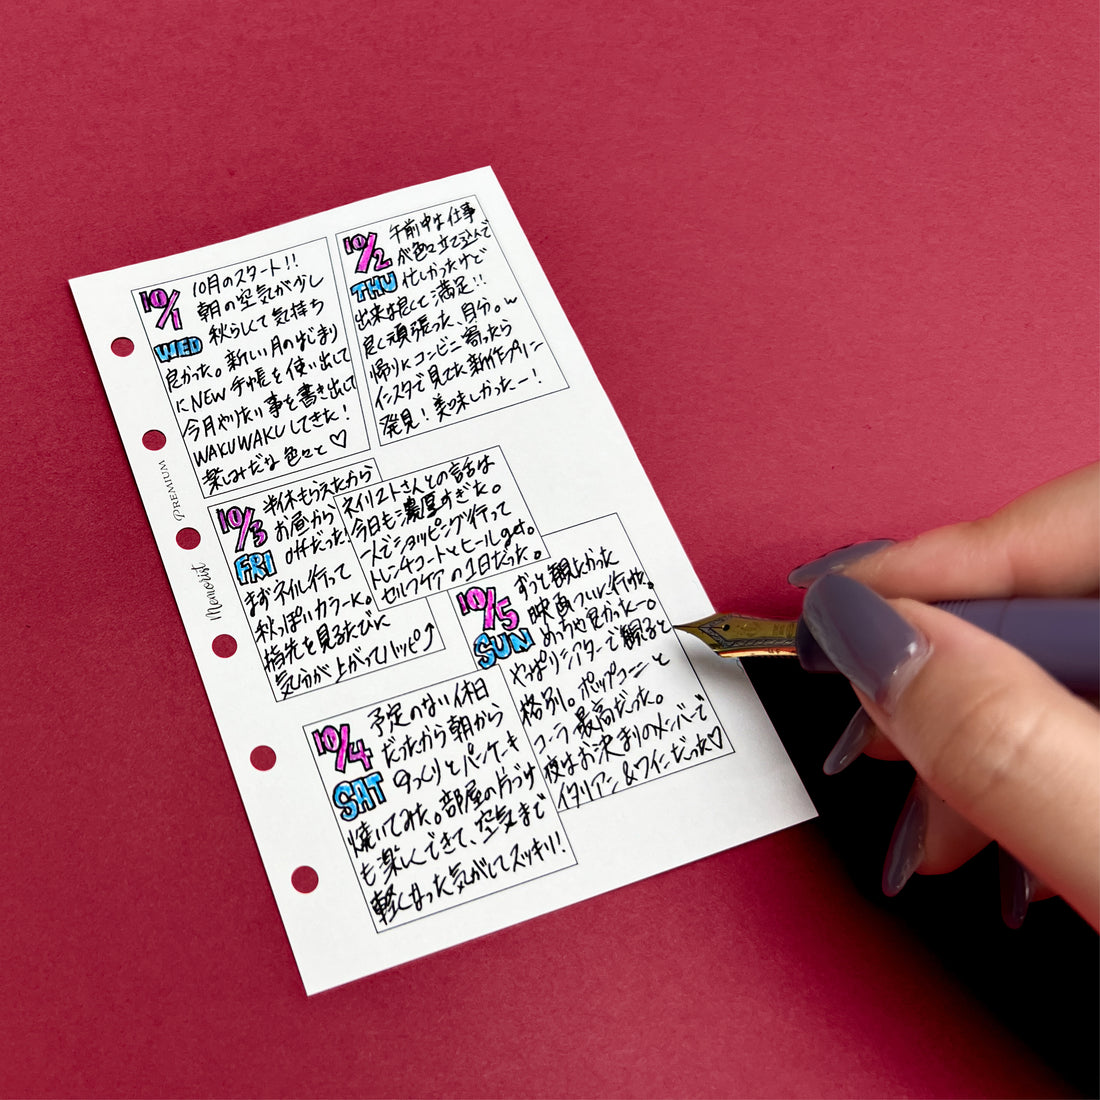 10/1
WED
10月のスタート!!
朝の空気が少し
秋らしくて気持ち
良かった。新しい月のはじまり
にNEW手帳を使い出して
今月やりたい事を書き出して
WAKUWAKUしてきた!
楽しみだな色々と♡
10/2
THU
午前中は仕事
が色々立て込んで
忙しかったけど
出来は良くて満足!!
良く頑張った、自分。w
帰りにコンビニ寄ったら
インスタで見てた新作プリン
発見!美味しかったー!
10/3
FRI
半休もらえたから
お昼から
offだった!
まずネイル行って
秋っぽいカラーに。
指先を見るたびに
気分が上がってハッピ⤴
ネイリストさんとの話は
今日も濃厚すぎた。
一人でショッピング行って
トレンチコートとヒールget。
セルフケアの1日だった。
10/4
SAT
予定のない休日
だったから朝から
ゆっくりとパンケーキ
焼いてみた。部屋の片づけ
も楽しくできて、空気まで
軽くなった気がしてスッキリ!
10/5
SUN
ずっと観たかった
映画ついに行けた。
めっちゃ良かったー。
やっぱりシアターで観ると
格別。ポップコーンと
コーラ最高だった。
夜はお決まりのメンバーで
イタリアン&ワインだった♡
PREMIUM
Memorist